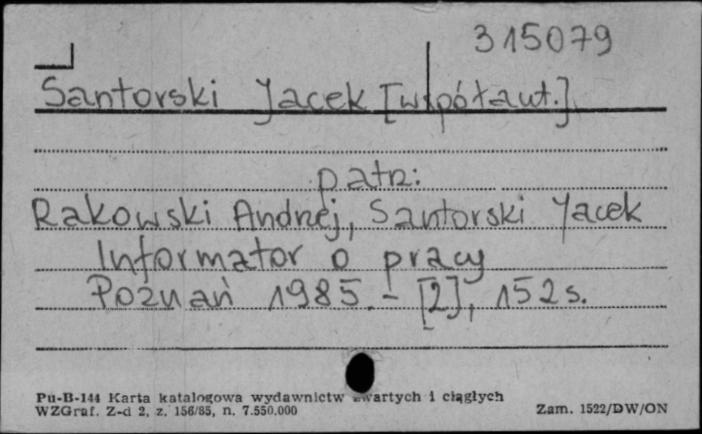 315079
Santorski Jacek [współaut.]
patrz:
Rakowski Andrzej, Santorski Jacek
Informator o pracy
Poznań 1985.- [2], 152 s.
Pu-B-144 Karta katalogowa wydawnictw zwartych i ciągłych
WZGraf. Z-d 2, z. 156/85, n. 7.550.000
Zam. 1522/DW/ON